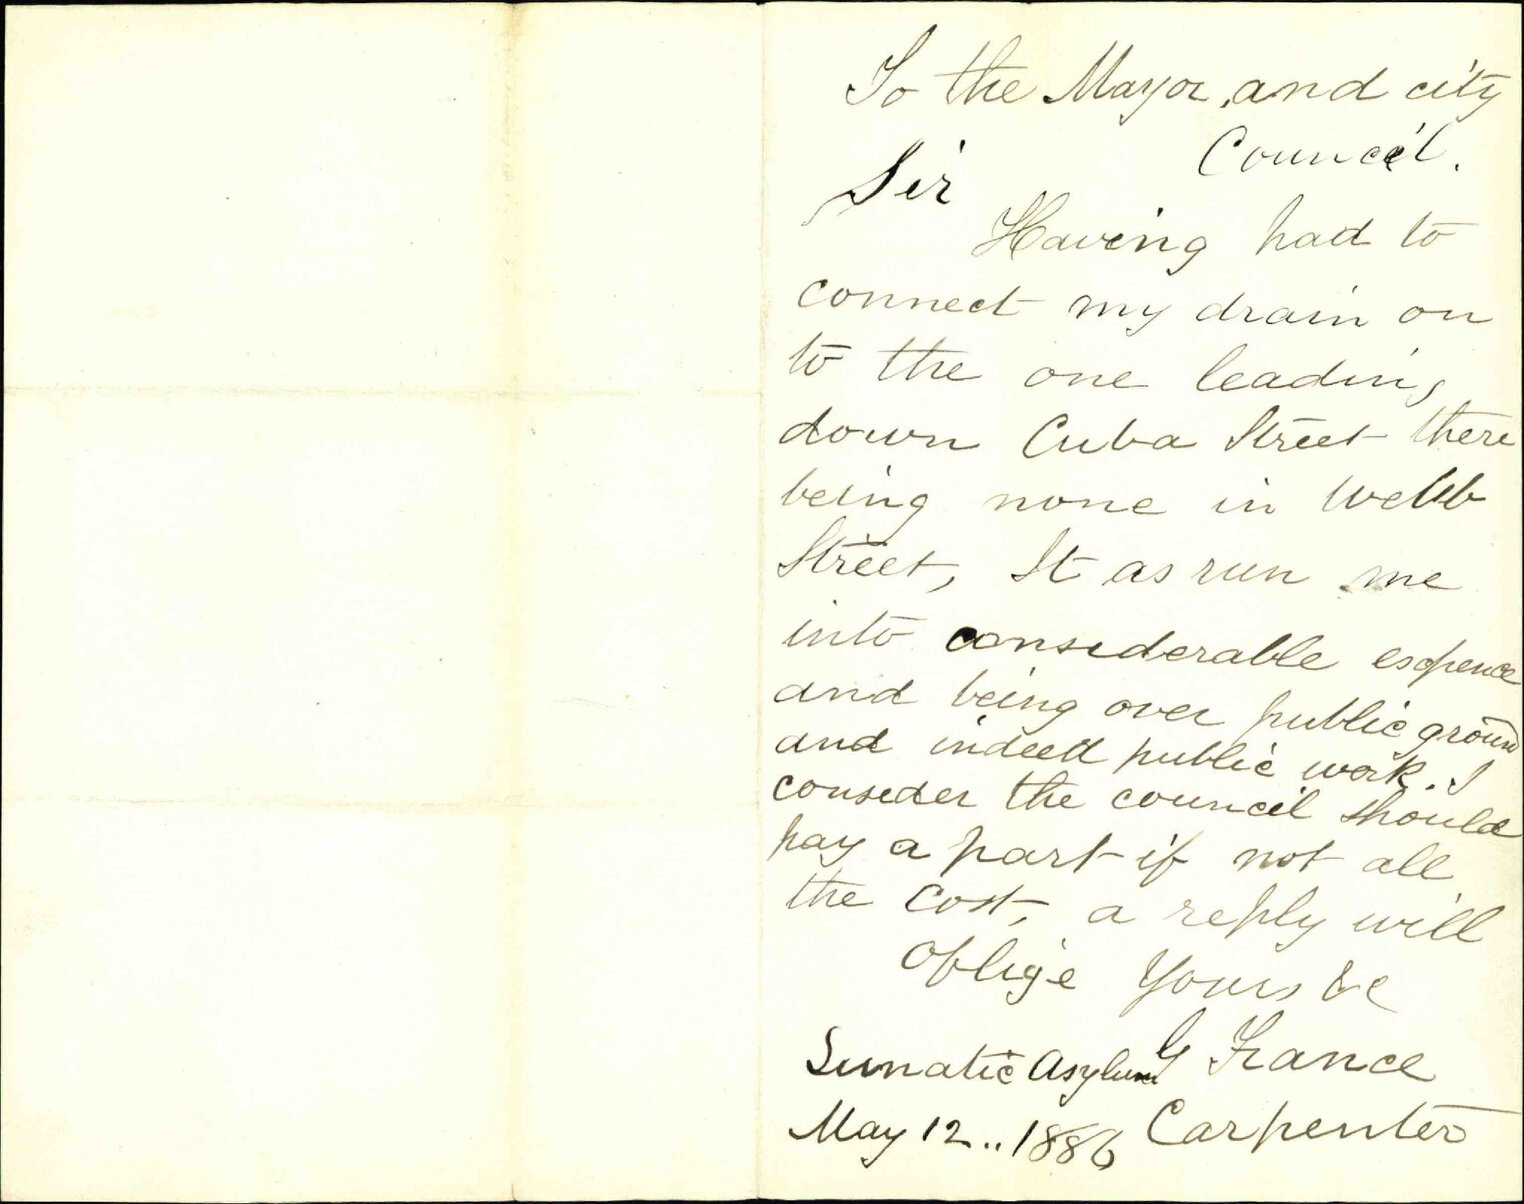 To the Mayor, and city
Council.
Sir
Having had to
connect my drain on
to the one leading
down Cuba Street there
being none in Webb
Street, It as run me
into considerable expence
and being over public ground
and indeed public work. I
conseder the council should
pay a part if not all
the cost, a reply will
oblige Yours &c
G France
Lunatic Asylum
Carpenter
May 12.. 1886